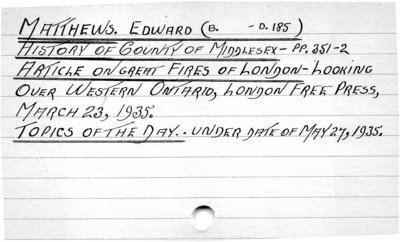 MATTHEWS. EDWARD (B. - D. 185 )
HISTORY OF COUNTY OF MIDDLESEX - PP. 351-2
ARTICLE ON GREAT FIRES OF LONDON - LOOKING
OVER WESTERN ONTARIO, LONDON FREE PRESS,
MARCH 23, 1935.
TOPICS OF THE DAY.. UNDER DATE OF MAY 27, 1935.